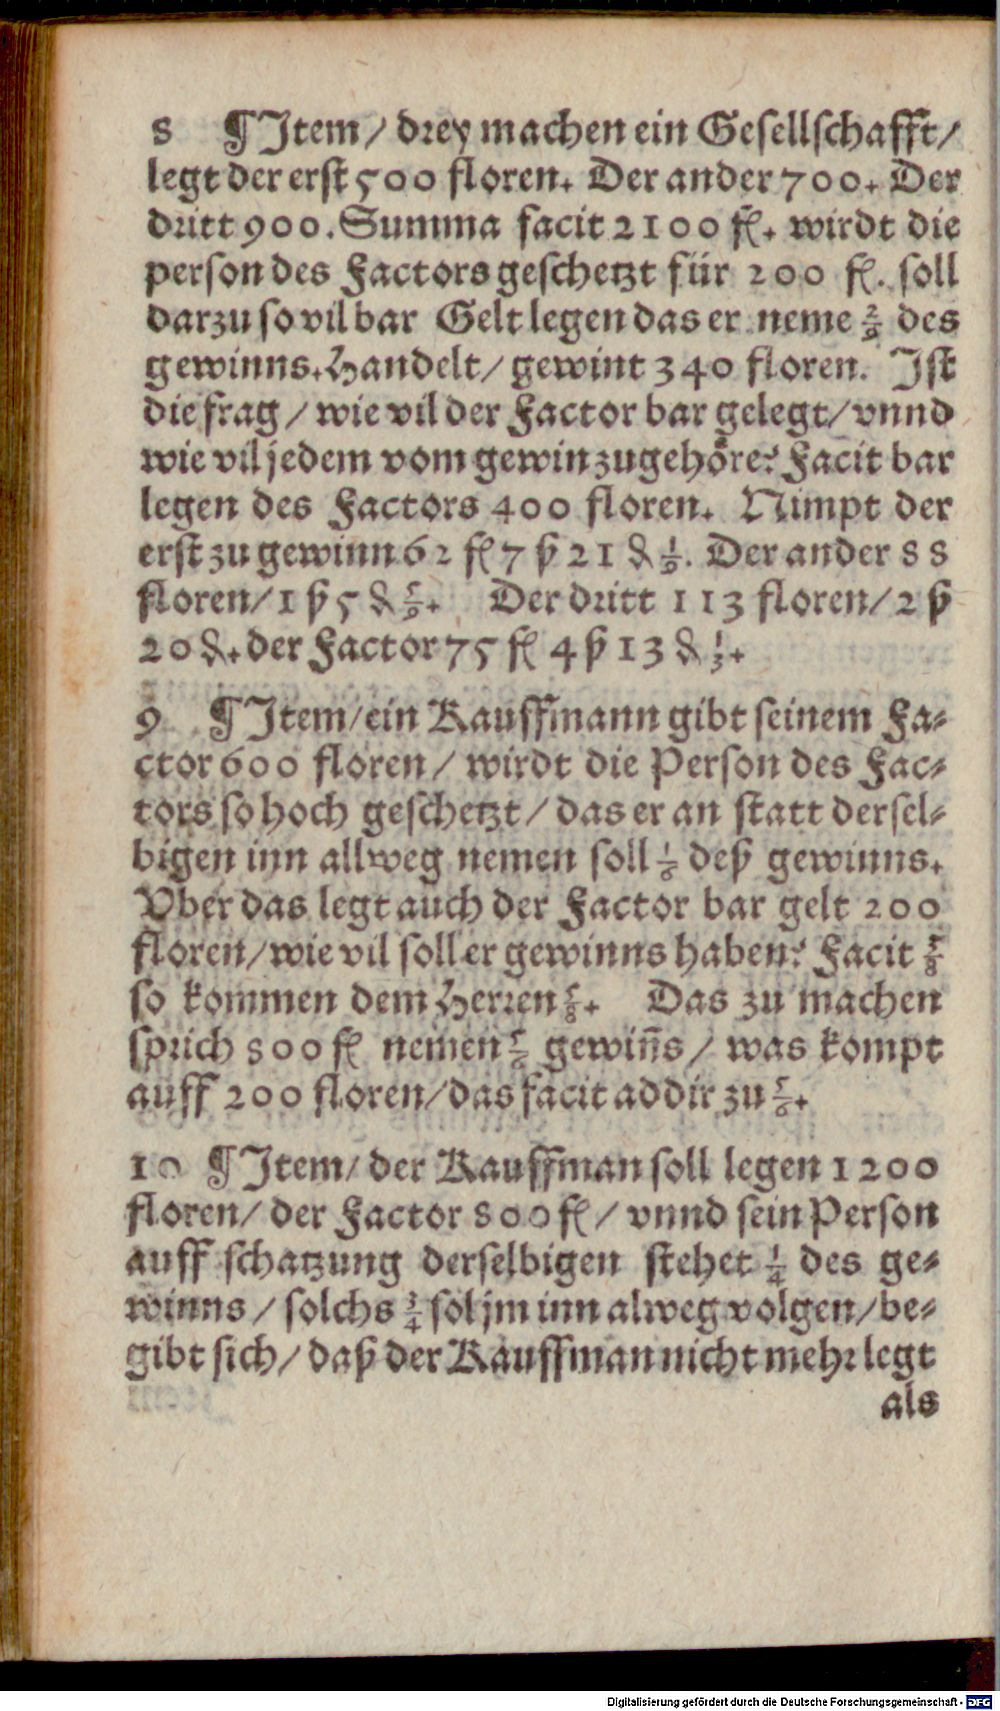 8 ¶ Item / drey machen ein Gesellschafft /
legt der erst 500 floren. Der ander 700. Der
dritt 900. Summa facit 2100 fl. wirdt die
person des Factors geschetzt für 200 fl. soll
darzu so vil bar Gelt legen das er neme 2/9 des
gewinns. Handelt / gewint 340 floren. Ist
die frag / wie vil der Factor bar gelegt / vnnd
wie vil jedem vom gewin zugehöre? Facit bar
legen des Factors 400 floren. Nimpt der
erst zu gewinn 62 fl 7 ß 21 ₰ 1/9. Der ander 88
floren / 1 ß 5 ₰ 5/9. Der dritt 113 floren / 2 ß
20 ₰. der Factor 75 fl 4 ß 13 ₰ 1/3.
9 ¶ Item / ein Kauffmann gibt seinem Fa-
ctor 600 floren / wirdt die Person des Fac-
tors so hoch geschetzt / das er an statt dersel-
bigen inn allweg nemen soll 1/6 deß gewinns.
Vber das legt auch der Factor bar gelt 200
floren / wie vil soll er gewinns haben? Facit 3/8
so kommen dem Herren 5/8. Das zu machen
sprich 800 fl nemen 5/6 gewiñs / was kompt
auff 200 floren / das facit addir zu
10 ¶ Item / der Kauffman soll legen 1200
floren / der Factor 800 fl / vnnd sein Person
auff schatzung derselbigen stehet 1/4 des ge-
winns / solchs 1/4 sol jm inn alweg volgen / be-
gibt sich / daß der Kauffman nicht mehr legt
als
Digitalisierung gefördert durch die Deutsche Forschungsgemeinschaft - DFG